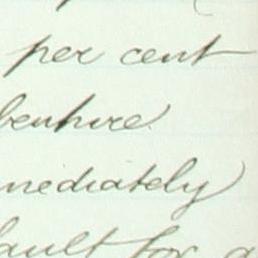 per cent
benture
mediately
ault for a